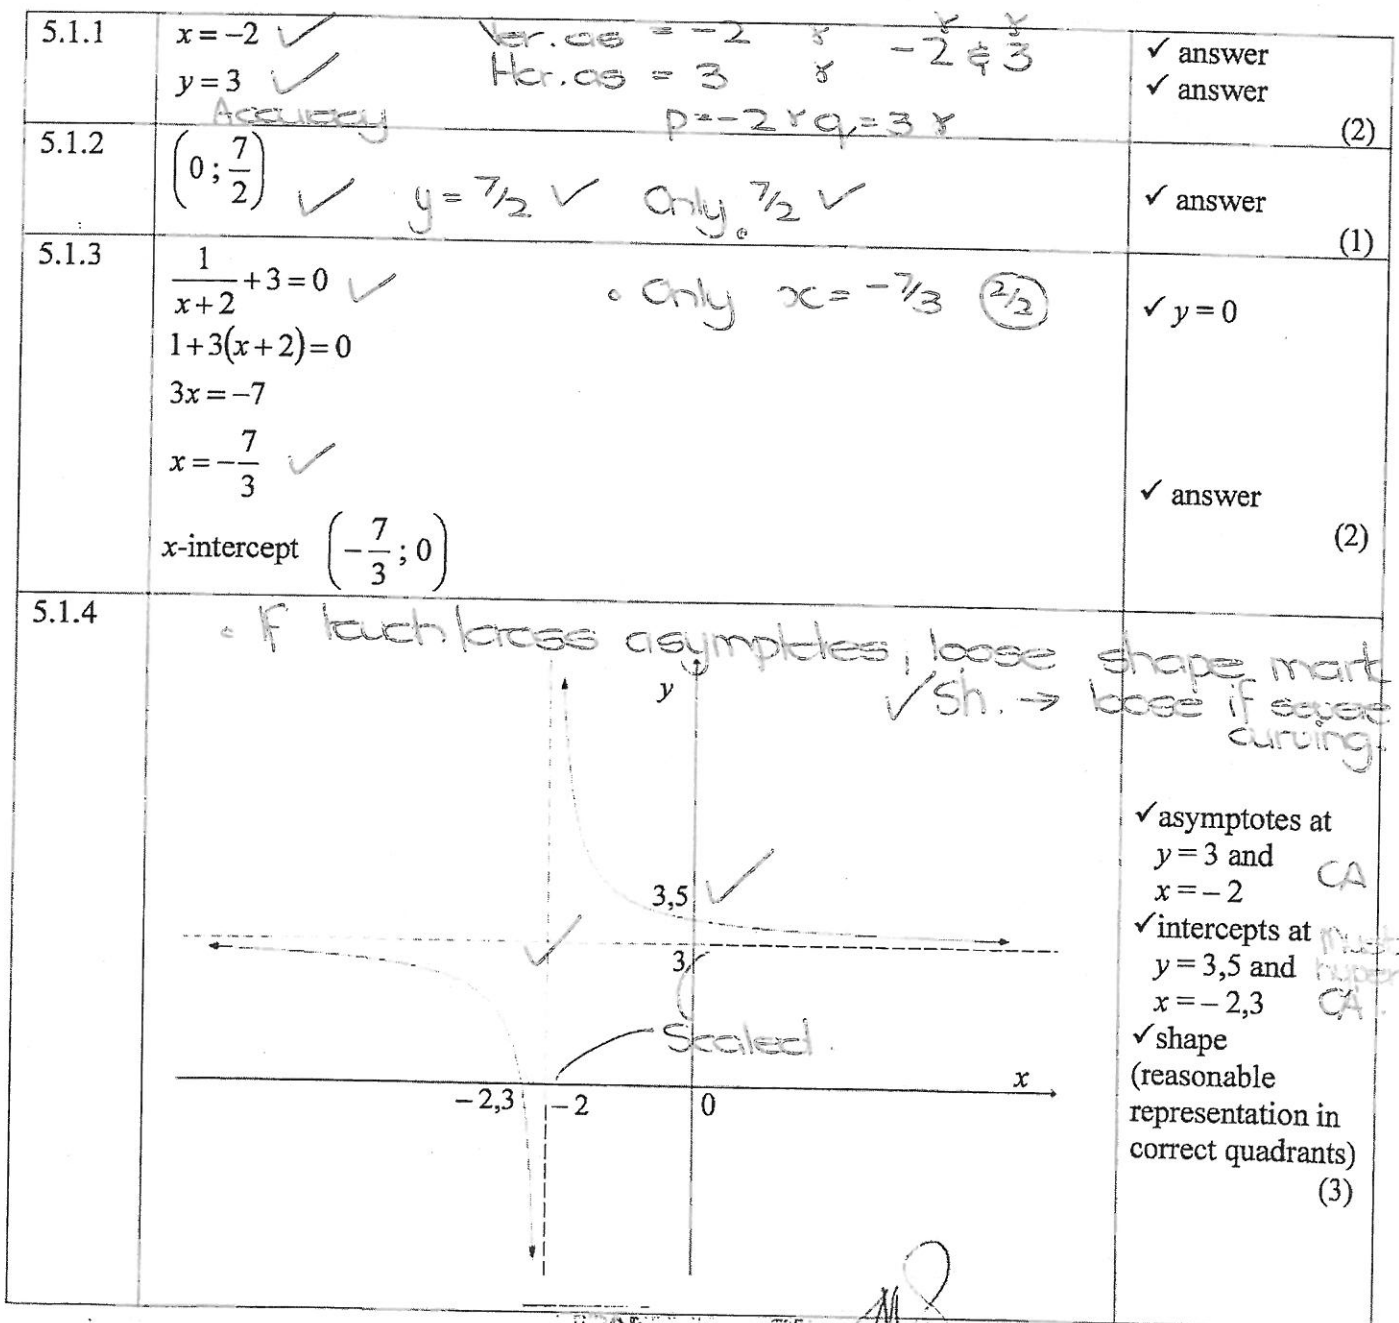 5.1.1
x = –2 ✓ Ver. as = -2 ɣ -2 & 3
y = 3 ✓ Hor. as = 3 ɣ
Accuracy p=-2 ɣ q=3 ɣ
✓ answer
✓ answer
(2)
5.1.2
(0 ; 7/2) ✓ y = 7/2 ✓ Only 7/2 ✓
✓ answer
(1)
5.1.3
1/(x+2) + 3 = 0 ✓ • Only x = -7/3 (2/2)
1 + 3(x + 2) = 0
3x = –7
x = –7/3 ✓
x-intercept (–7/3 ; 0)
✓ y = 0
✓ answer
(2)
5.1.4
• If touch/cross asymptotes, loose shape mark
✓ Sh. → loose if severe
curving.
y
3,5 ✓
✓
3
Scaled.
x
– 2,3
– 2
0
✓ asymptotes at
y = 3 and
x = – 2
CA
✓ intercepts at
y = 3,5 and
x = – 2,3
Must
hyper
CA
✓ shape
(reasonable
representation in
correct quadrants)
(3)